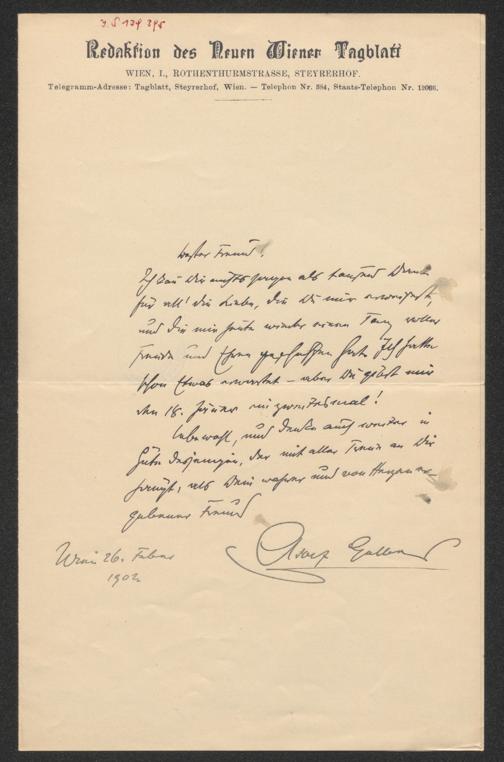 I. N. 134 395
Redaktion des Neuen Wiener Tagblatt
WIEN, I., ROTHENTHURMSTRASSE, STEYRERHOF.
Telegramm-Adresse: Tagblatt, Steyrerhof, Wien. — Telephon Nr. 384, Staats-Telephon Nr. 12066.
Freund!
Ich kann Dir nichts sagen als tausend Dank
für all' die Liebe, die Du mir erweisest,
und die mir heute wieder einen Tag voller
Freude und Ehren geschaffen hat. Ich hatte
schon Etwas erwartet – aber Du gibst mir
den 18. Jänner ein zweitesmal!
Lebewohl, und denke auch weiter in
Güte desjenigen, der mit aller Treue an Dir
hängt, als Dein wahrer und von Herzen er-
gebener Freund
Adolf
Wien 26. Feber
1902